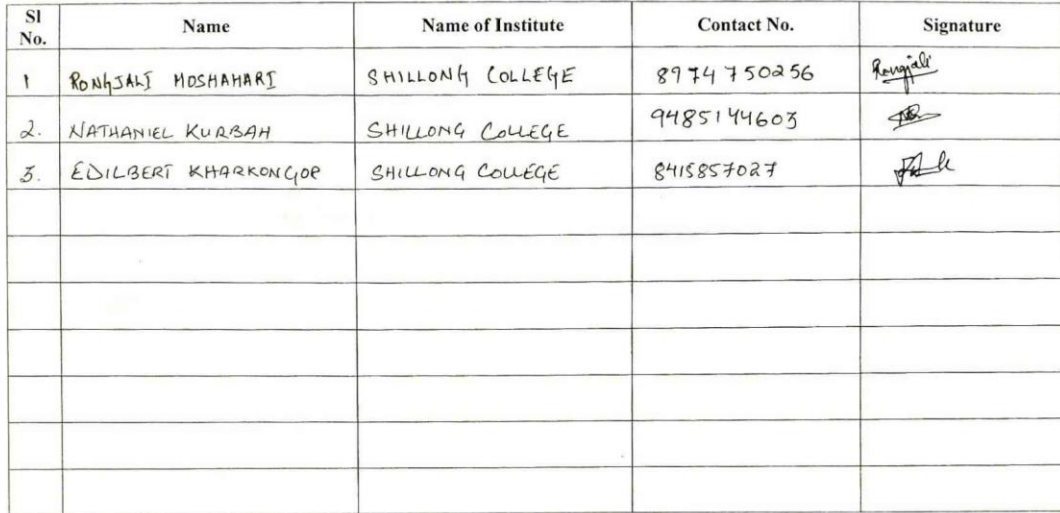 Sl No. Name Name of Institute Contact No. Signature
1 RONGJALI MOSHAHARI SHILLONG COLLEGE 8974750256 Rongjali
2. NATHANIEL KURBAH SHILLONG COLLEGE 9485144603
3. EDILBERT KHARKONGOR SHILLONG COLLEGE 8415857027